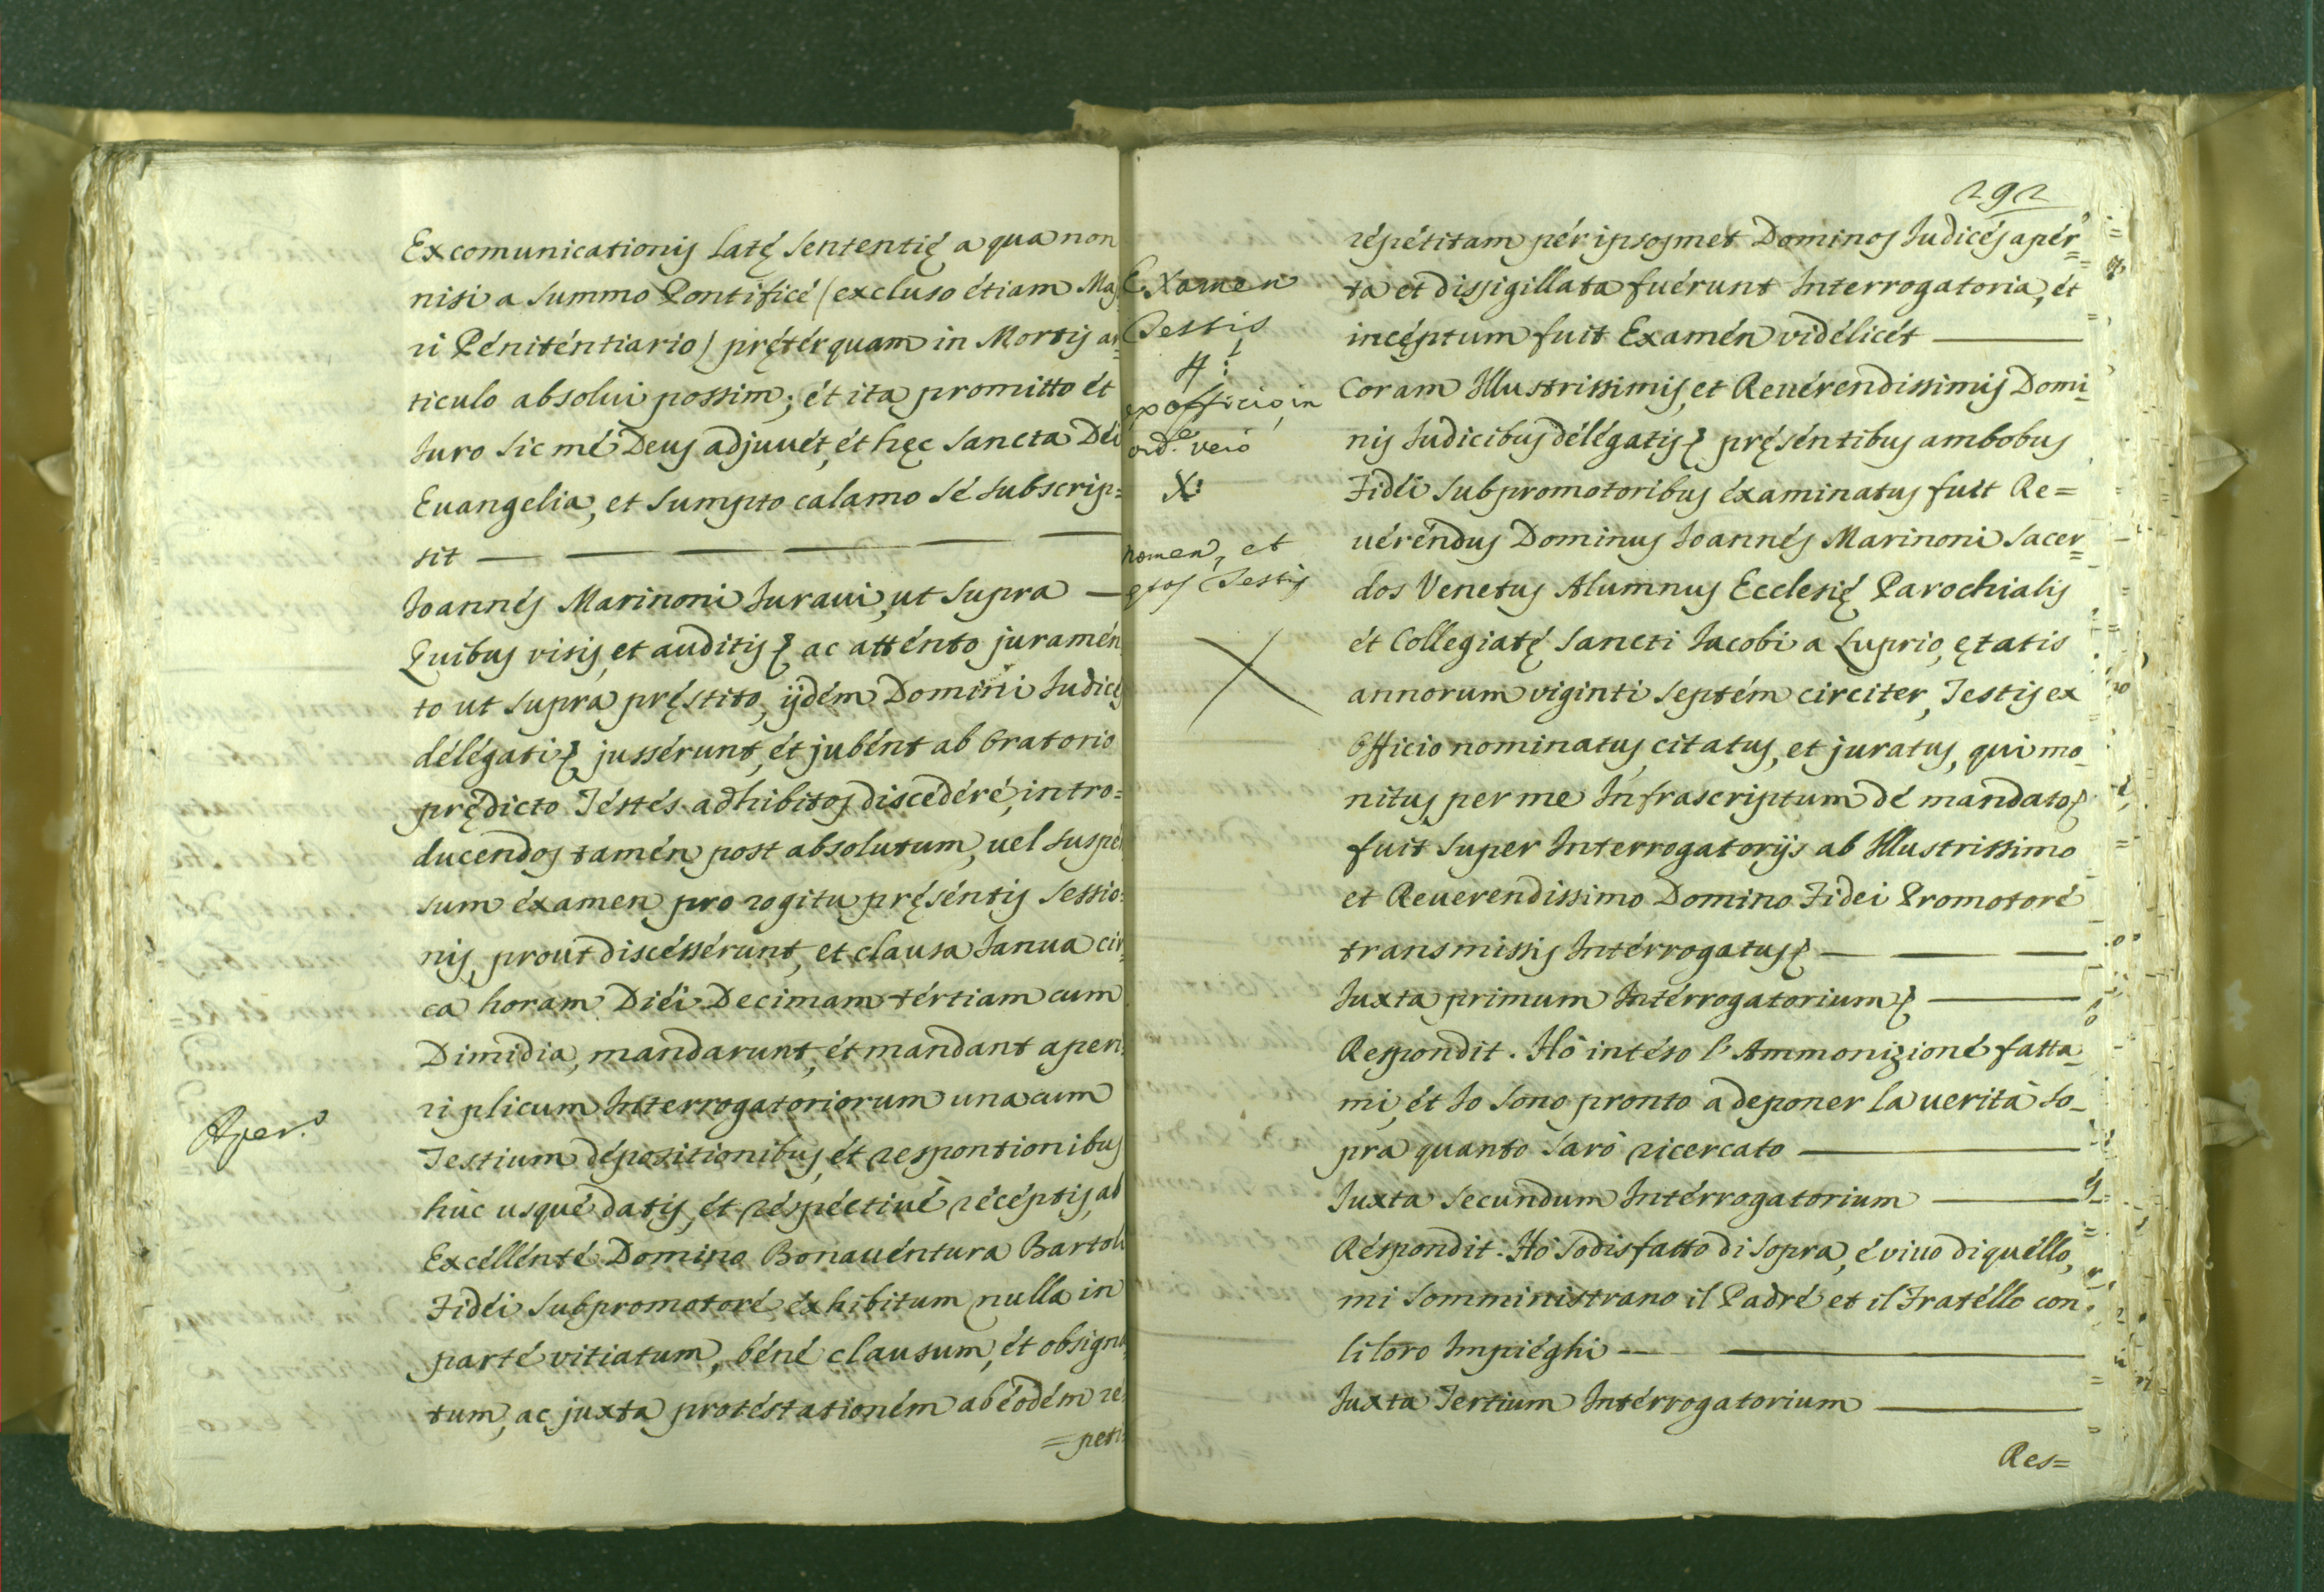 Excomunicationis latę sententię a qua non
nisi a summo Pontificé (excluso étiam Majo
ri Péniténtiario) pręterquam in Mortis ar=
ticulo absolui possim; ét ita promitto ét
Juro sic mé Deus adjuuét, ét hęc sancta Déi
Euangelia, et sumpto calamo sé subscrip=
sit
Joannés Marinoni Juraui, ut supra
Quibus visis, et auditis ac atténto juramén
to ut supra pręstito, ijdém Domini Judices
délégati jussérunt, ét jubént ab Oratorio
prędicto Téstés adhibitos discedéré, intro=
ducendos tamén post absolutum, uel suspen
sum éxamen pro rogitu pręséntis Sessio=
nis, prout discéssérunt, et clausa Janua cir=
ca horam Diéi Decimam tértiam cum
Dimidia, mandarunt, ét mandant aperi=
ri plicum Interrogatoriorum una cum
Aper.o
Testium dépositionibus, ét responsionibus
húc usqué datis, ét réspéctiué récéptis, ab
Excéllénté Domino Bonauéntura Bartoli
Fidéi Subpromotoré éxhibitum nulla in
parté vitiatum, béné clausum, ét obsigna
tum, ac juxta protéstationém ab éodém ré
=peti=
292
répétitam pér ipsosmet Dominos Judicés apér=
ta et dissigillata fuérunt Interrogatoria, ét
incéptum fuit Examén vidélicét
Examen
Testis
4:
ex officio, in
ord.e vero
X:
nomen, et
Testis
Coram Illustrissimis, et Reuérendissimis Domi=
nis Judicibus délégatis pręséntibus ambobus
Fidéi Subpromotoribus éxaminatus fuit Re=
uéréndus Dominus Joannés Marinoni Sacer=
dos Venetus Alumnus Ecclesię Parochialis
ét Collegiatę Sancti Jacobi a Luprio, ętatis
annorum viginti septém circiter, Testis ex
Officio nominatus, citatus, et juratus, qui mo=
nitus per me Infrascriptum dé mandato
fuit super Interrogatorijs ab Illustrissimo
et Reuerendissimo Domino Fidei Promotoré
transmissis Intérrogatus
Juxta primum Intérrogatorium
Respondit. Hò intéso l'Ammonizioné fatta=
mi, ét Io sono pronto a deponer la uerità so=
pra quanto sarò ricercato
Juxta Secundum Intérrogatorium
Réspondit. Hò sodisfatto di sopra, é viuo di quéllo,
mi somministrano il Padré et il Fratéllo con
li loro Impiéghi
Juxta Tertium Intérrogatorium
Res=